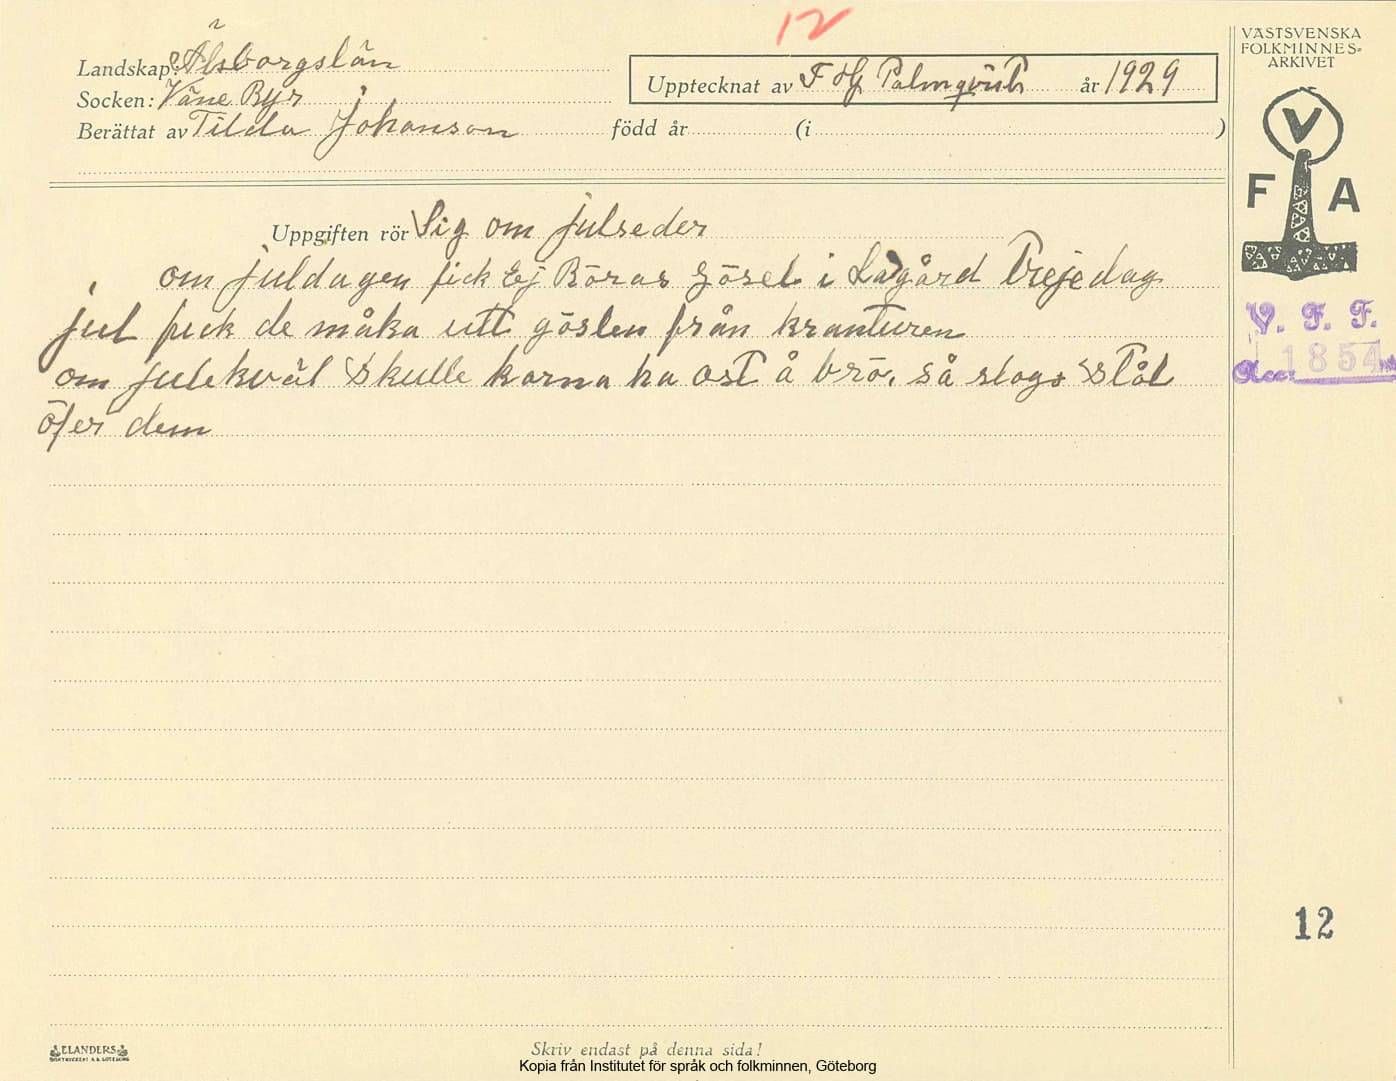 12
VÄSTSVENSKA
FOLKMINNES-
ARKIVET
Landskap: Älsborgslän
Socken: Väne Ryr
Upptecknat av F Hj Palmqvist år 1929
Berättat av Tilda Johanson född år (i )
V
F A
Uppgiften rör Sig om julseder
om juldagen fick Ej Böras Gösel i Lagård Treje dag
jul fick de måka utt göslen från kranturen
om julekväl skulle korna ha osT å brö, så slogs stål
öfer dem
V. F. F.
Acc: 1854
12
ELANDERS
BOKTRYCKERI A.B. GÖTEBORG
Skriv endast på denna sida!
Kopia från Institutet för språk och folkminnen, Göteborg